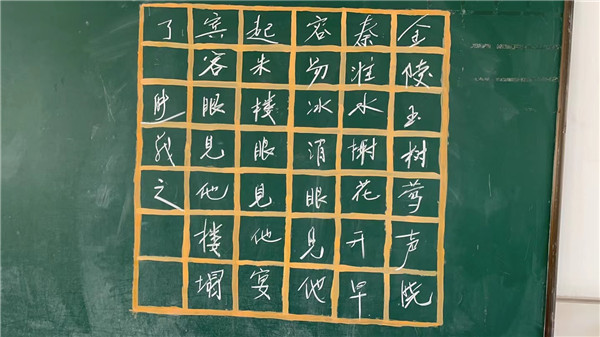 金陵玉树莺声晓
秦淮水榭花开早
容易冰消眼见他
起朱楼眼见他宴
宾客眼见他楼塌
了
之